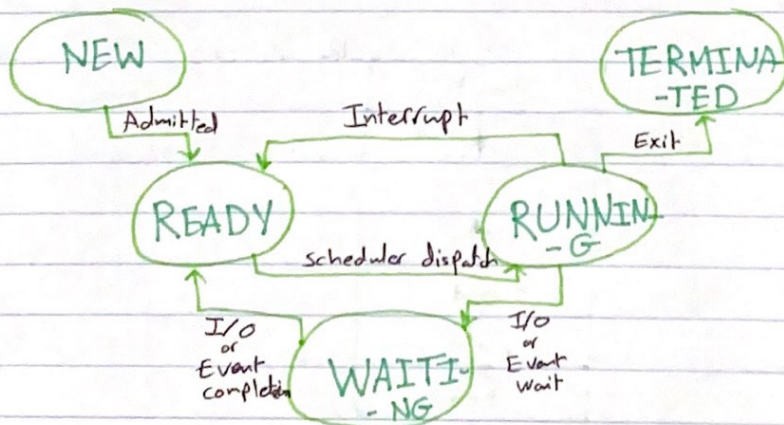 NEW
TERMINA
-TED
Admitted
Interrupt
Exit
READY
RUNNIN
-G
scheduler dispatch
I/O
or
Event
completion
I/O
or
Event
wait
WAITI-
-NG